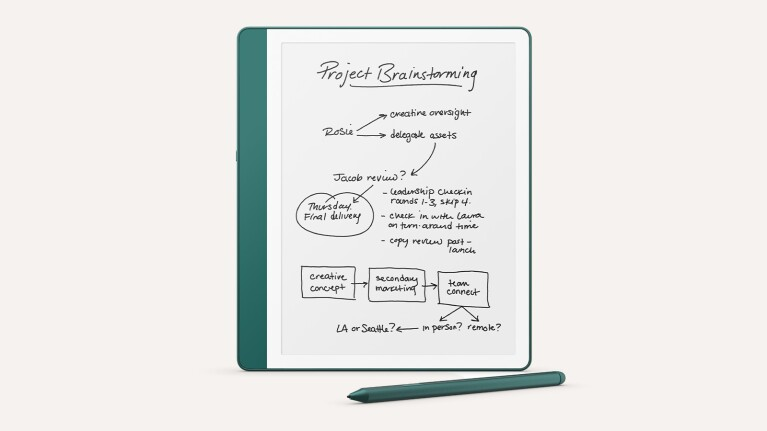 Project Brainstorming
Rosie
creative oversight
delegate assets
Jacob review?
Thursday.
Final delivery
- leadership checkin
rounds 1-3, skip 4.
- check in with Laura
on turn-around time
- copy review post-
launch
creative
concept
secondary
marketing
team
connect
LA or Seattle?
in person?
remote?